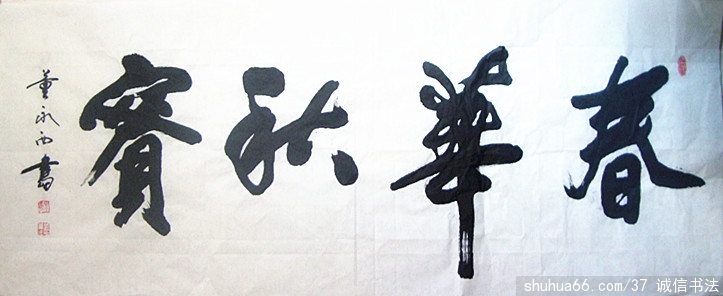 春華秋實
董永西書
shuhua66.com/37 诚信书法